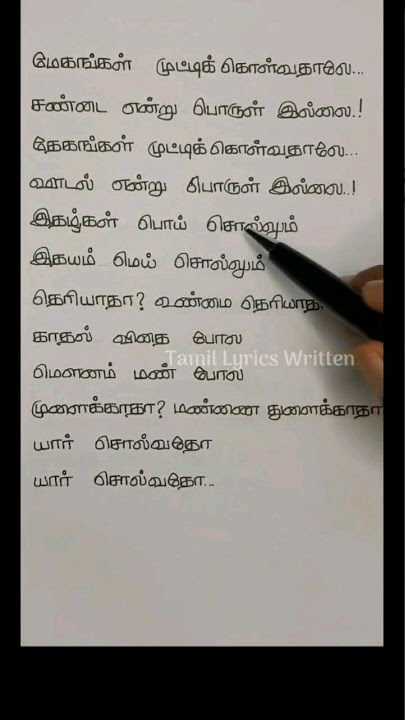 மேகங்கள் முட்டிக் கொள்வதாலே...
சண்டை என்று பொருள் இல்லை.!
தேகங்கள் முட்டிக்கொள்வதாலே...
ஊடல் என்று பொருள் இல்லை..!
இதழ்கள் பொய் சொல்லும்
இதயம் மெய் சொல்லும்
தெரியாதா? உண்மை தெரியாதா
காதல் விதை போல
Tamil Lyrics Written
மௌனம் மண் போல
முளைக்காதா? மண்ணை துளைக்காதா
யார் சொல்வதோ
யார் சொல்வதோ...